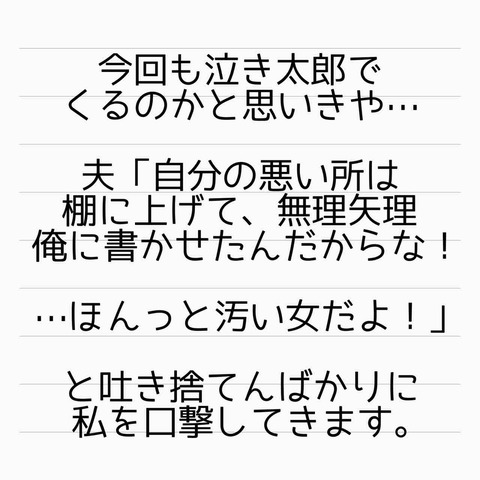 今回も泣き太郎で
くるのかと思いきや…
夫「自分の悪い所は
棚に上げて、無理矢理
俺に書かせたんだからな！
…ほんっと汚い女だよ！」
と吐き捨てんばかりに
私を口撃してきます。